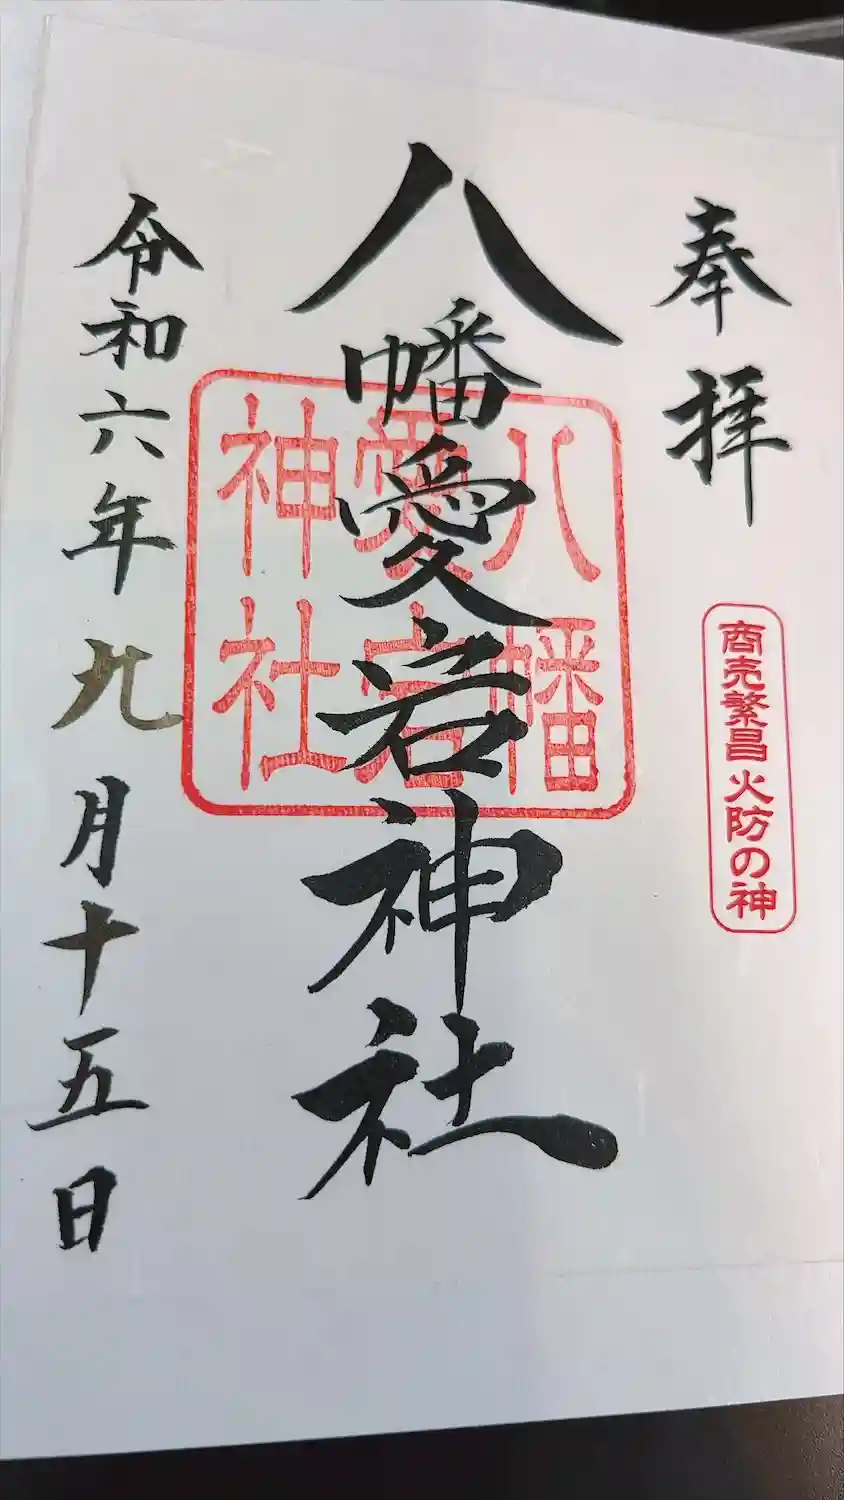 奉拝
商売繁昌火防の神
八幡愛宕神社
八幡
愛宕
神社
令和六年九月十五日